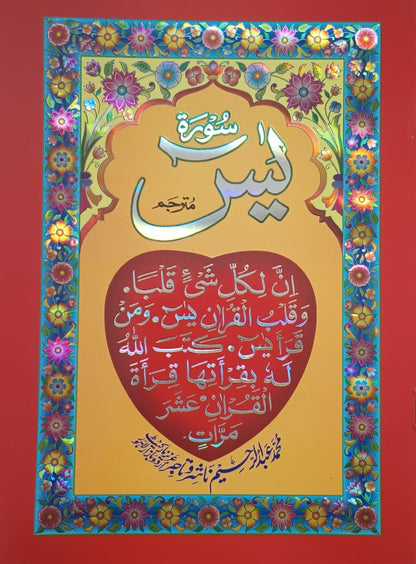 سُوْرَة
يٰسٓ
مُترجم
اِنَّ لِكُلِّ شَيْءٍ قَلْبًا.
وَقَلْبُ الْقُرْاٰنِ يٰسٓ. وَمَنْ
قَرَأَ يٰسٓ. كَتَبَ اللّٰهُ
لَهٗ بِقَرْأَتِهَا قِرَأَةَ
الْقُرْاٰنِ عَشَرَ
مَرَّاتٍ.
محمد عبد الرحیم ناشر و تاجر